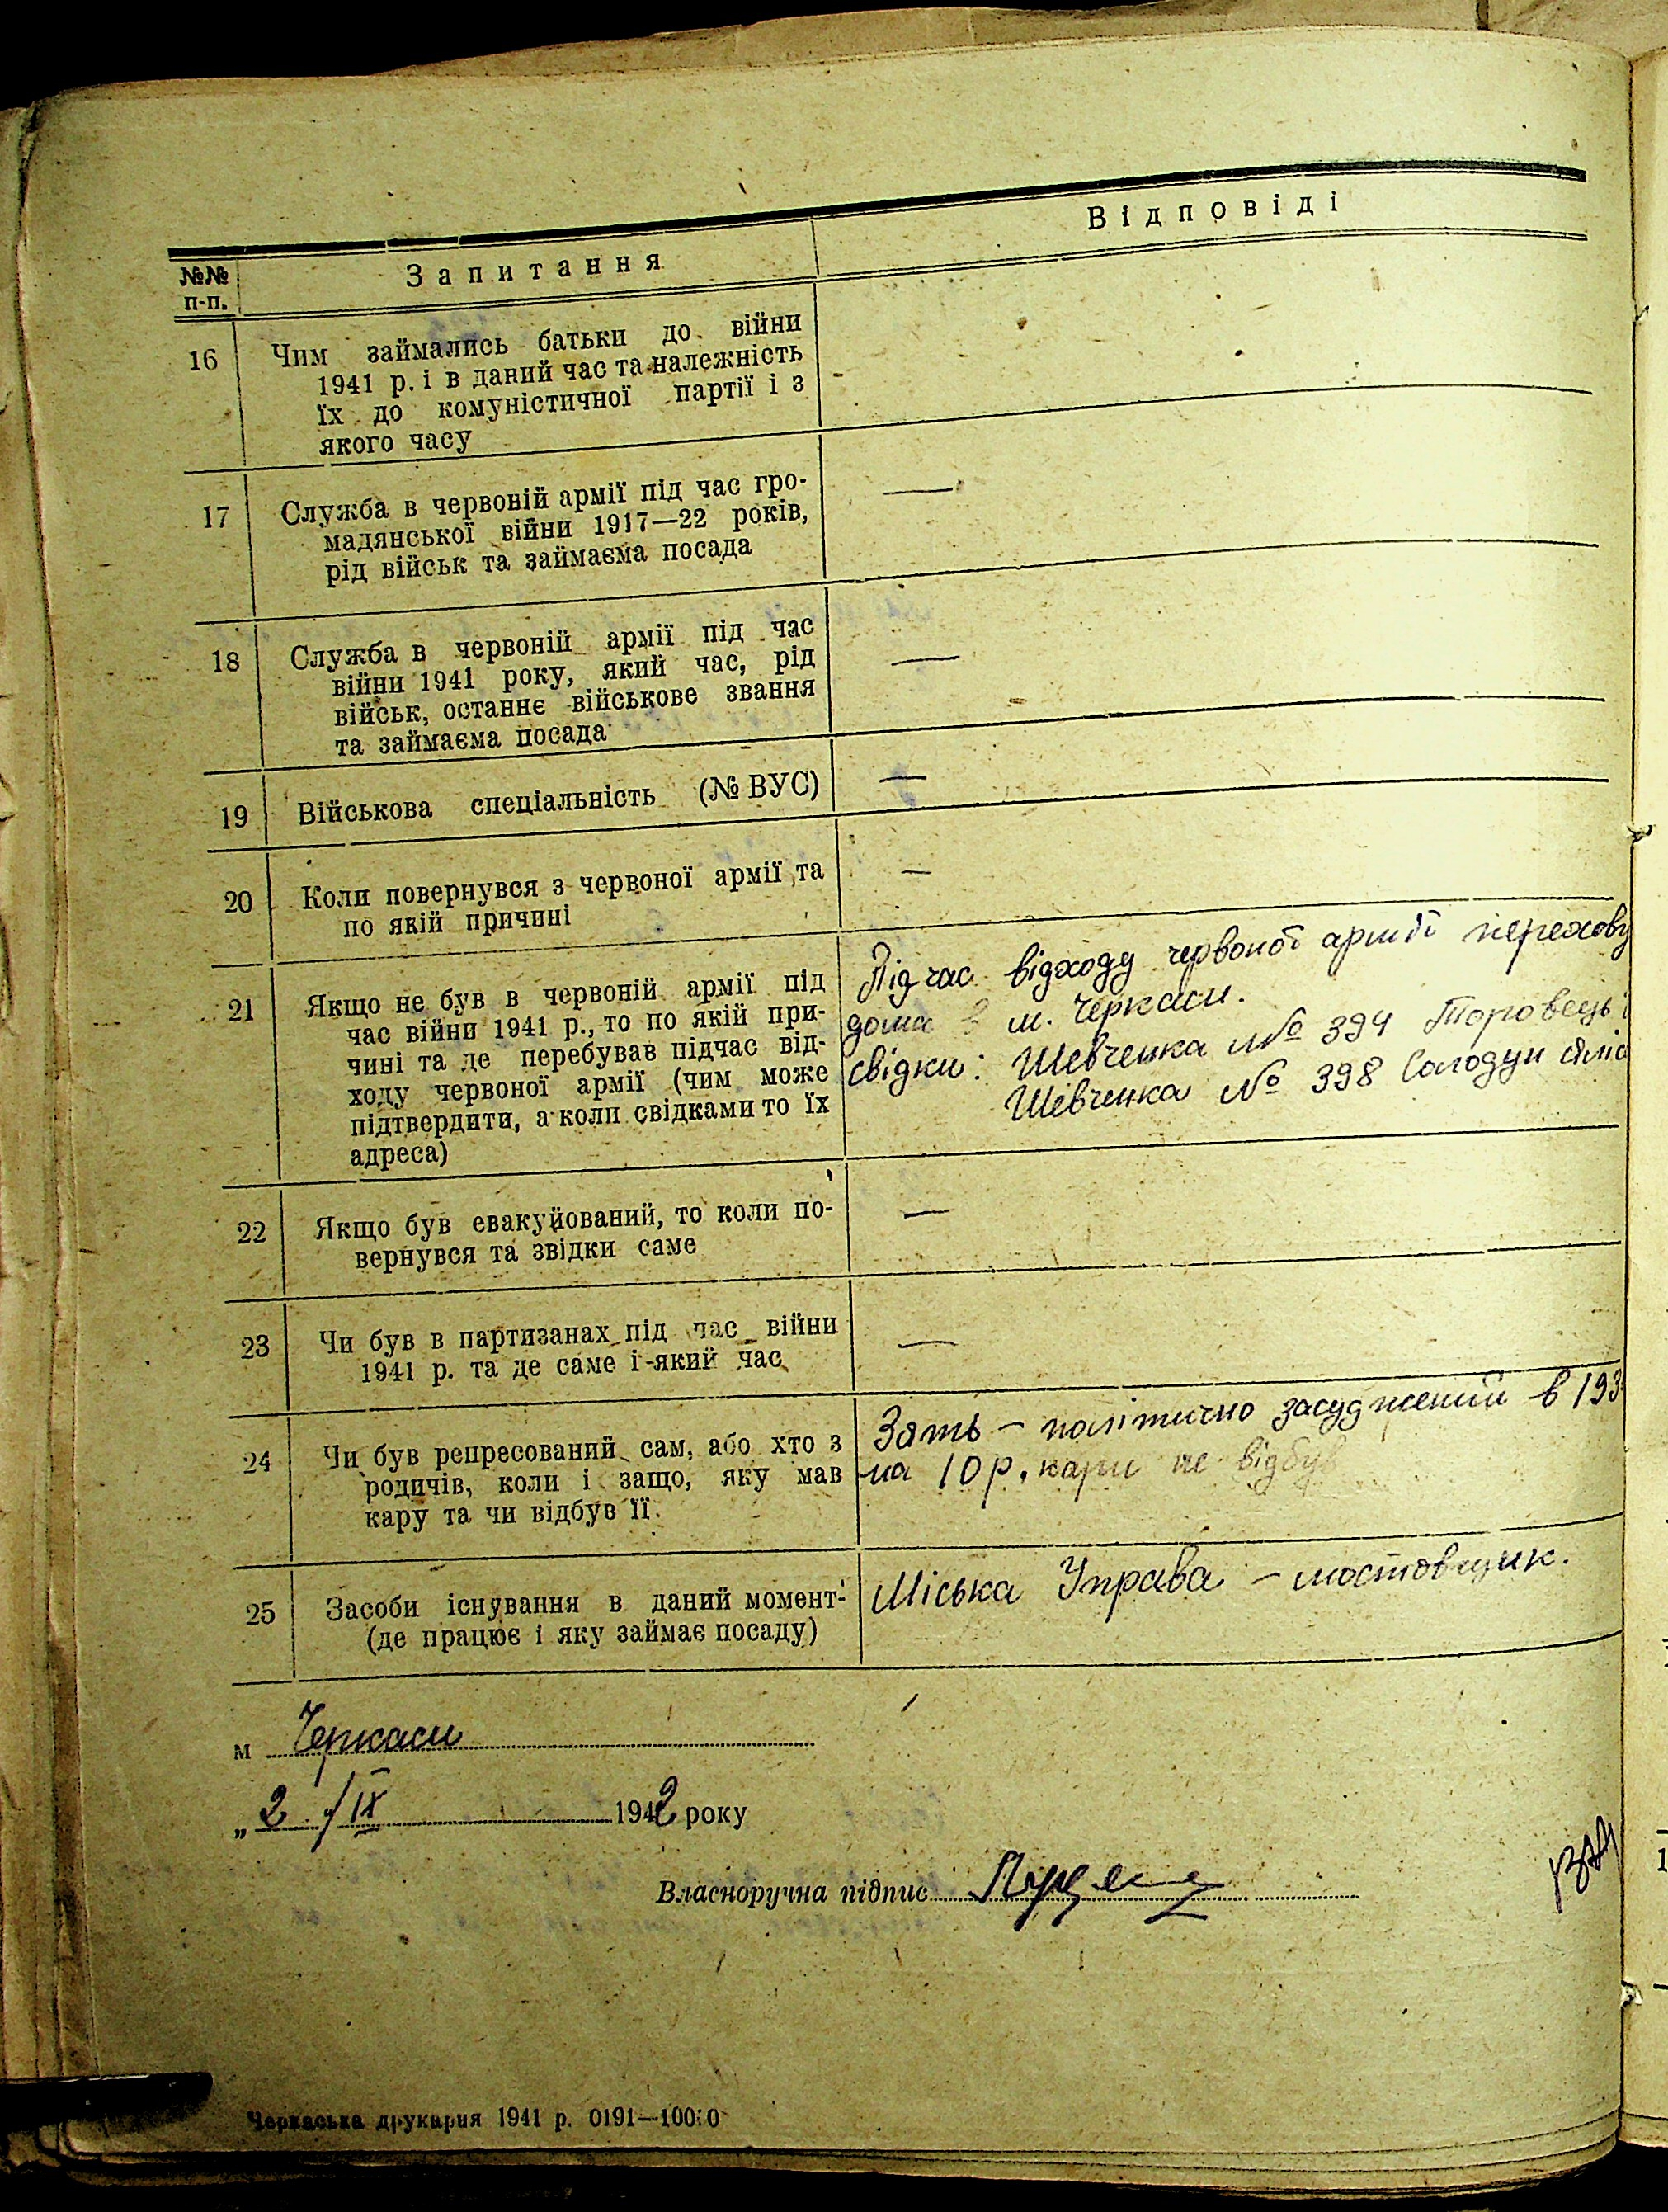 Відповіді
№№ Запитання
п-п.
16 Чим займались батьки до війни
1941 р. і в даний час та належність
їх до комуністичної партії і з
якого часу
17 Служба в червоній армії під час гро-
мадянської війни 1917—22 років,
рід військ та займаєма посада
—
18 Служба в червоній армії під час
війни 1941 року, який час, рід
військ, останнє військове звання
та займаєма посада
—
19 Військова спеціальність (№ ВУС)
—
20 Коли повернувся з червоної армії та
по якій причині
—
21 Якщо не був в червоній армії під
час війни 1941 р., то по якій при-
чині та де перебував підчас від-
ходу червоної армії (чим може
підтвердити, а коли свідками то їх
адреса)
Під час відходу червоної армії перехову
дома в м. Черкаси.
свідки: Шевченка № 394 Торовець
Шевченка № 398 Солодун
22 Якщо був евакуйований, то коли по-
вернувся та звідки саме
—
23 Чи був в партизанах під час війни
1941 р. та де саме і який час
—
24 Чи був репресований сам, або хто з
родичів, коли і защо, яку мав
кару та чи відбув її.
Зять – політично засуджений в 193
на 10 р. кари не відбув
25 Засоби існування в даний момент
(де працює і яку займає посаду)
Міська Управа – мостовщик.
м Черкаси
„2 / IX 1942 року
Власноручна підпис
Черкаська друкарня 1941 р. 0191—10000